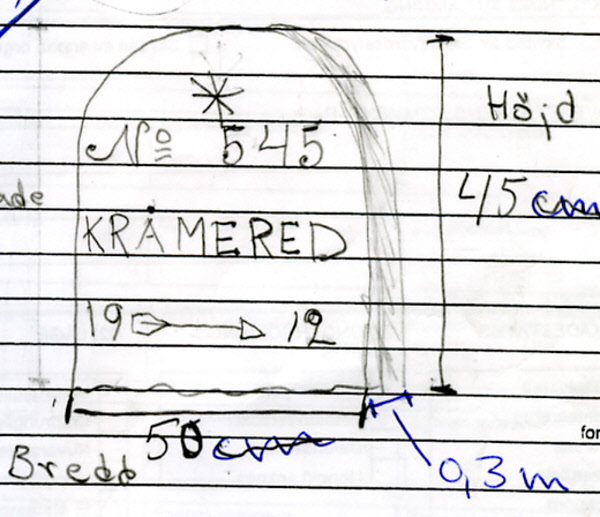 Höjd
45 cm
Nº 545
ade
KRÅMERED
19 12
50 cm
Bredd
0,3 m
for